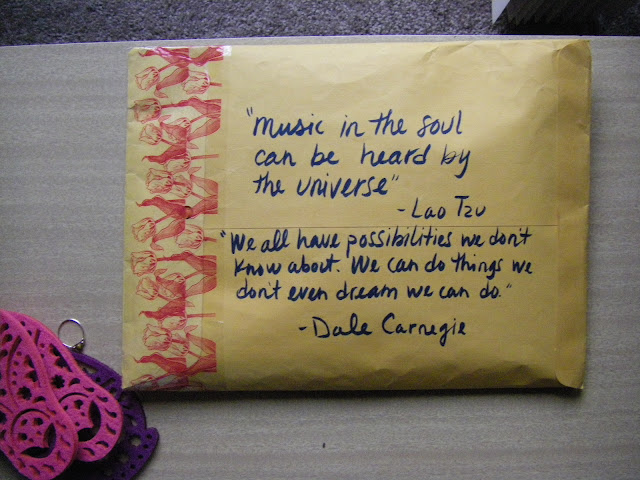 "Music in the soul
can be heard by
the universe"
- Lao Tzu
"We all have possibilities we don't
know about. We can do things we
don't even dream we can do."
- Dale Carnegie